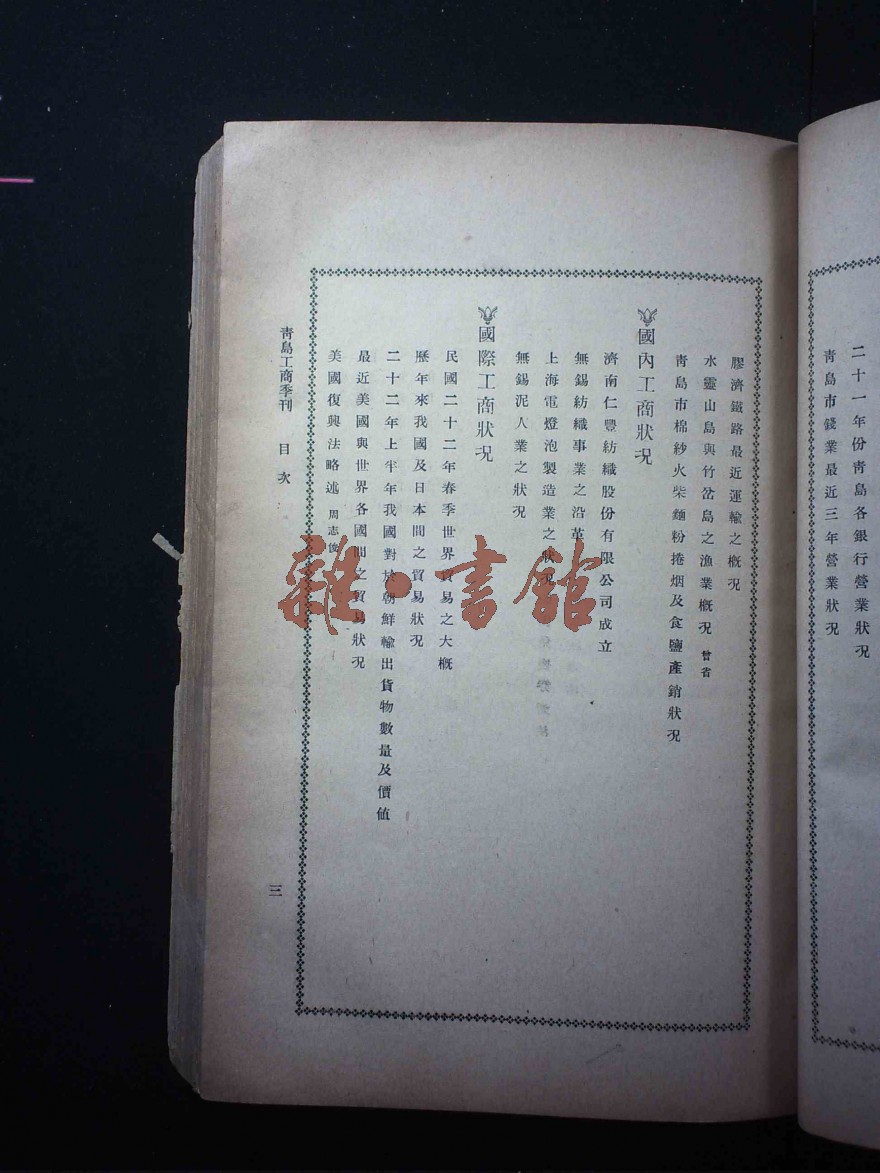 二十一年份靑島各銀行營業狀况
靑島市錢業最近三年營業狀况
膠濟鐵路最近運輸之槪况
水靈山島與竹岔島之漁業槪况 曾省
靑島市棉紗火柴麵粉捲烟及食鹽產銷狀况
國內工商狀况
濟南仁豐紡織股份有限公司成立
無錫紡織事業之沿革
上海電燈泡製造業之狀况
無錫泥人業之狀况
國際工商狀况
民國二十二年春季世界貿易之大槪
歷年來我國及日本間之貿易狀况
二十二年上半年我國對於朝鮮輸出貨物數量及價値
最近美國與世界各國間之貿易狀况
美國復興法略述 周志俊
靑島工商季刊 目次
三
雜·書館